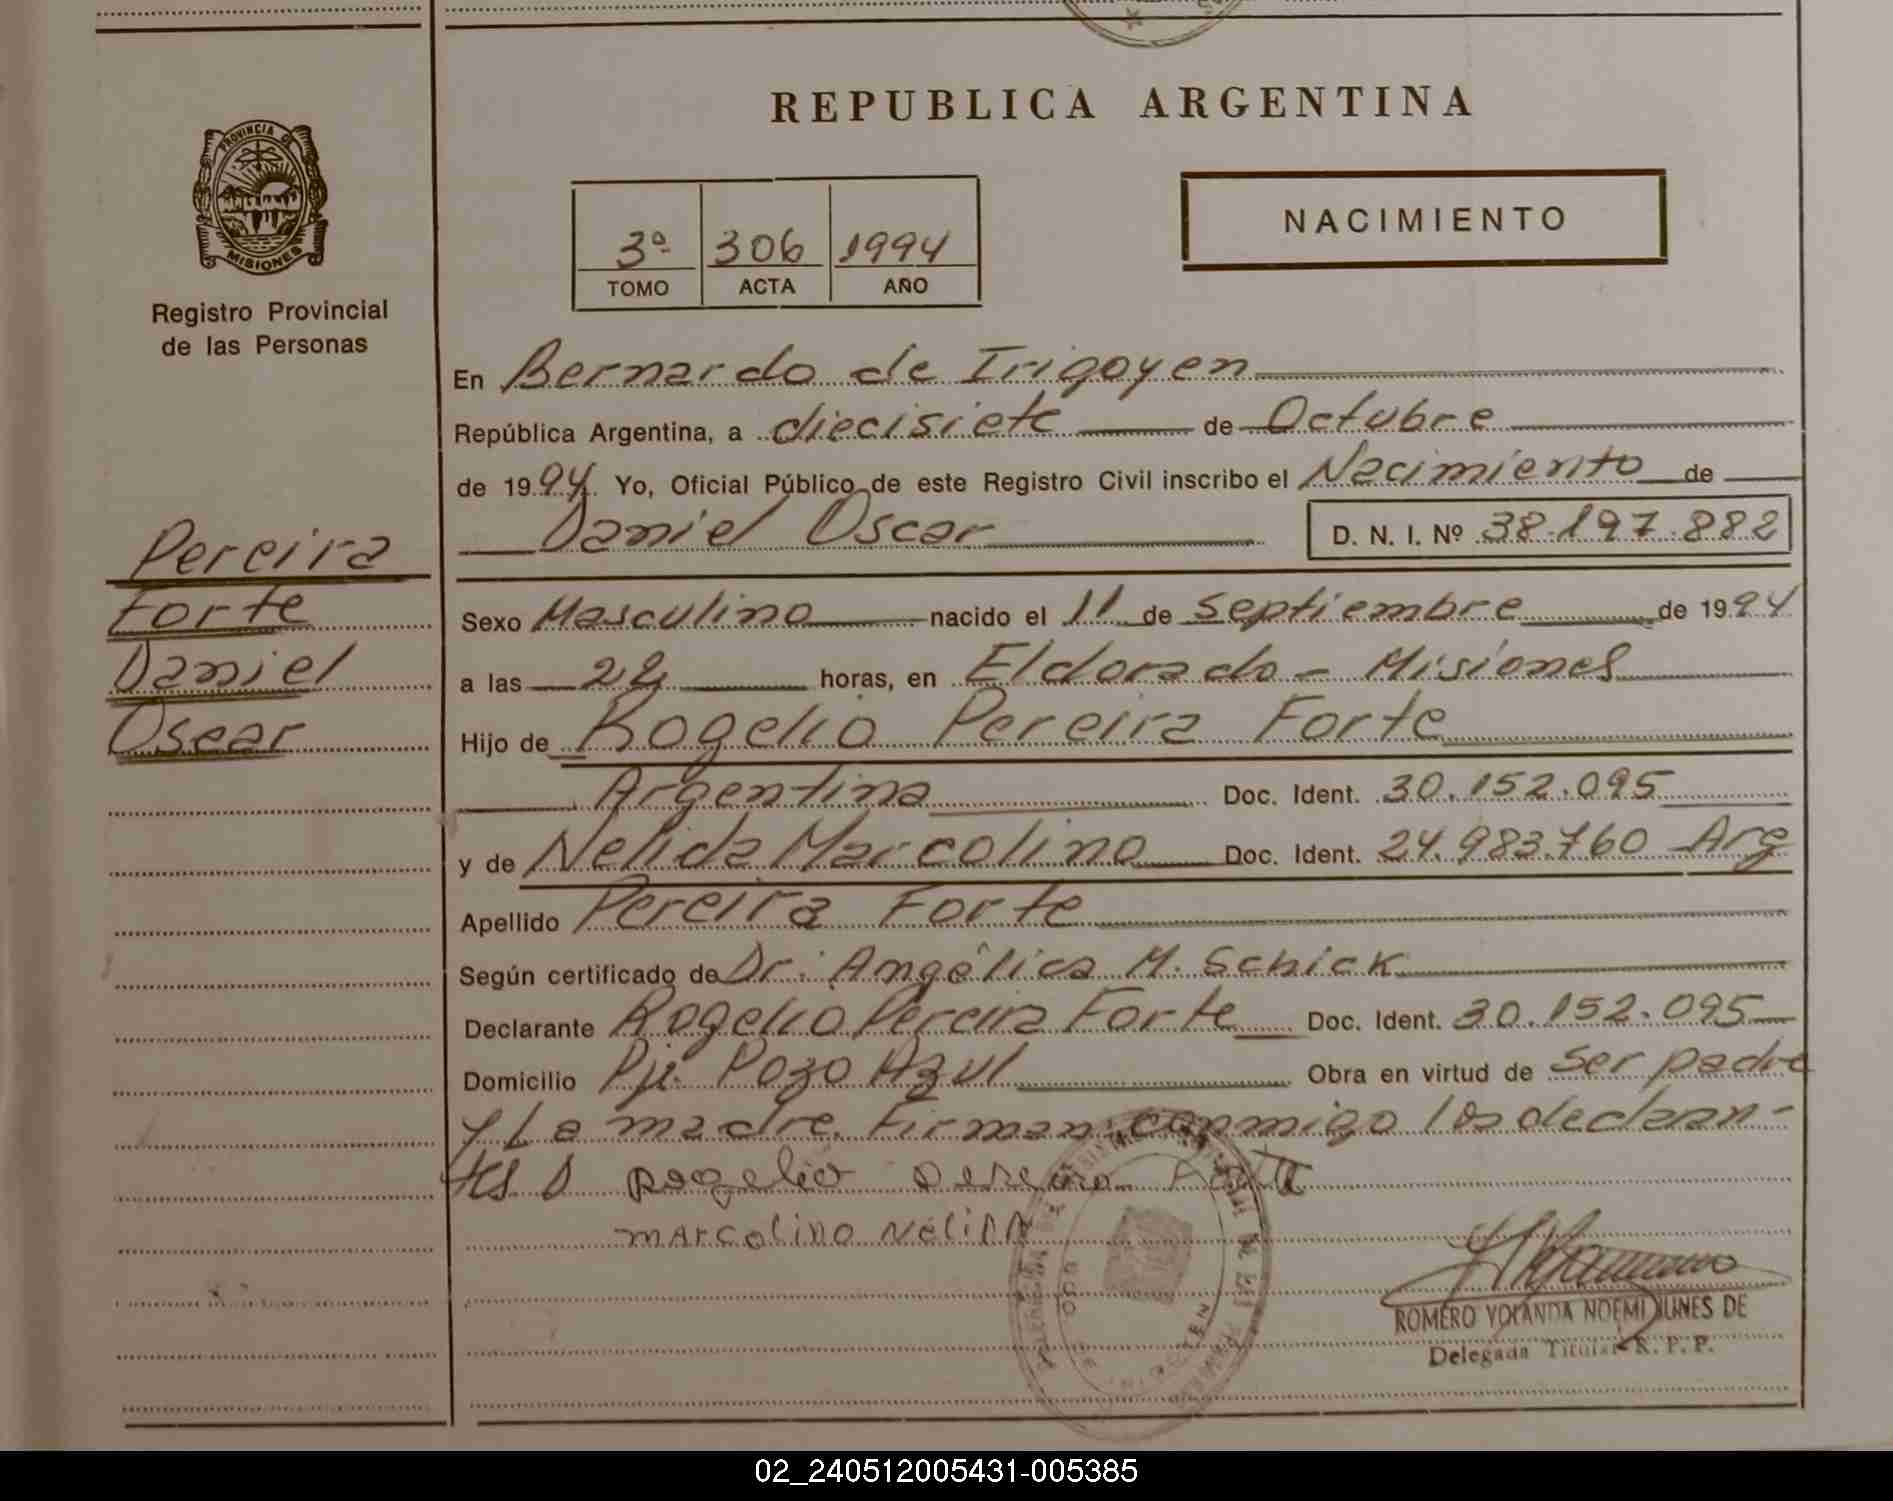 REPUBLICA ARGENTINA
PROVINCIA DE
MISIONES
Registro Provincial
de las Personas
3º 306 1994
TOMO ACTA AÑO
NACIMIENTO
En Bernardo de Irigoyen
República Argentina, a diecisiete de Octubre
de 1994. Yo, Oficial Público de este Registro Civil inscribo el Nacimiento de
Daniel Oscar D. N. I. Nº 38.197.882
Pereira
Forte
Daniel
Oscar
Sexo Masculino nacido el 11 de Septiembre de 1994
a las horas, en Eldorado - Misiones
Hijo de Rogelio Pereira Forte
Argentina Doc. Ident. 30.152.095
y de Nelida Marcolino Doc. Ident. 24.983.760 Arg
Apellido Pereira Forte
Según certificado de Dr. Angélica M. Schick
Declarante Rogelio Pereira Forte Doc. Ident. 30.152.095
Domicilio Pje. Pozo Azul Obra en virtud de ser padre
y La madre. Firman conmigo los declaran-
tes
Rogelio
MArcolino Nélida
ROMERO YOLANDA NOEMI NUNES DE
Delegada Titular R. P. P.
02_240512005431-005385